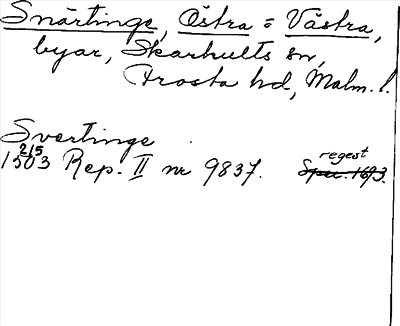 Snärtinge, Östra = Västra,
byar, Skarhults sn,
Frosta hd, Malm. l.
Svertinge
1503 21/5 Rep. II nr 9837. regest Spec. 1693.